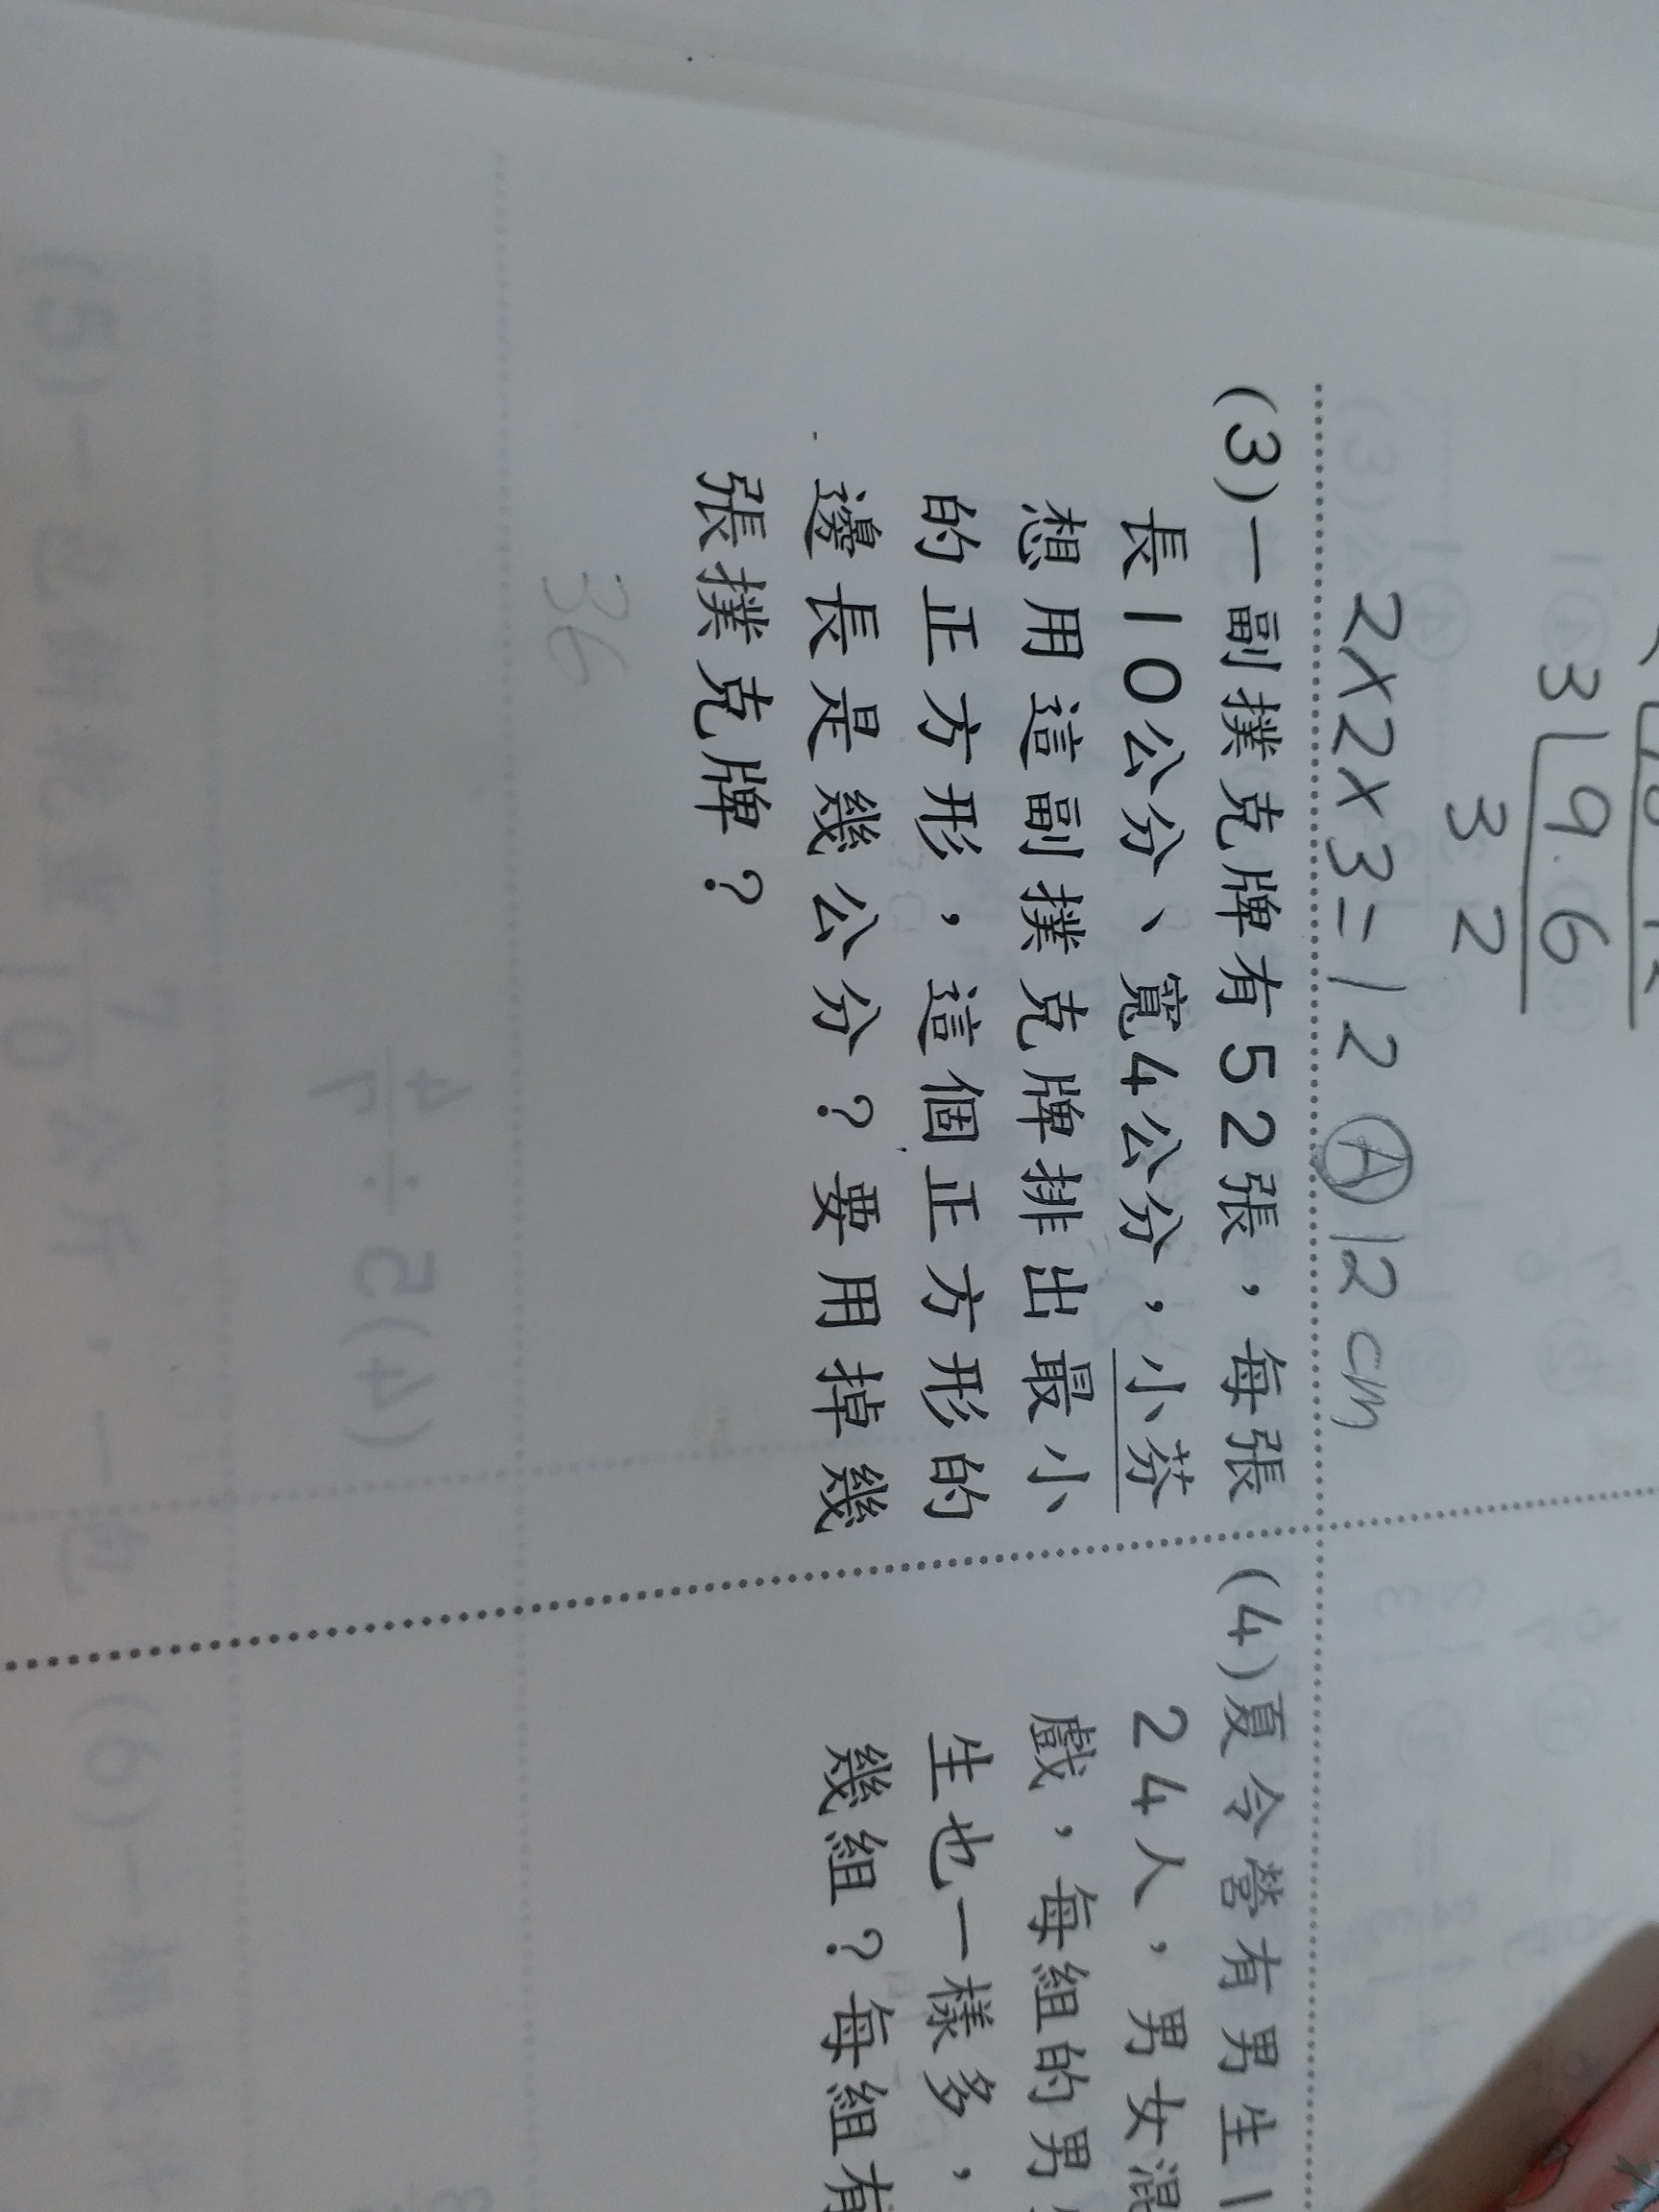 3 9 6
3 2
2×2×3=12 Ⓐ12cm
(3)一副撲克牌有52張，每張
長10公分、寬4公分，小芬
想用這副撲克牌排出最小
的正方形，這個正方形的
邊長是幾公分？要用掉幾
張撲克牌？
36
(4)夏令營有男生1
24人，男女混
戲，每組的男
生也一樣多，
幾組？每組有